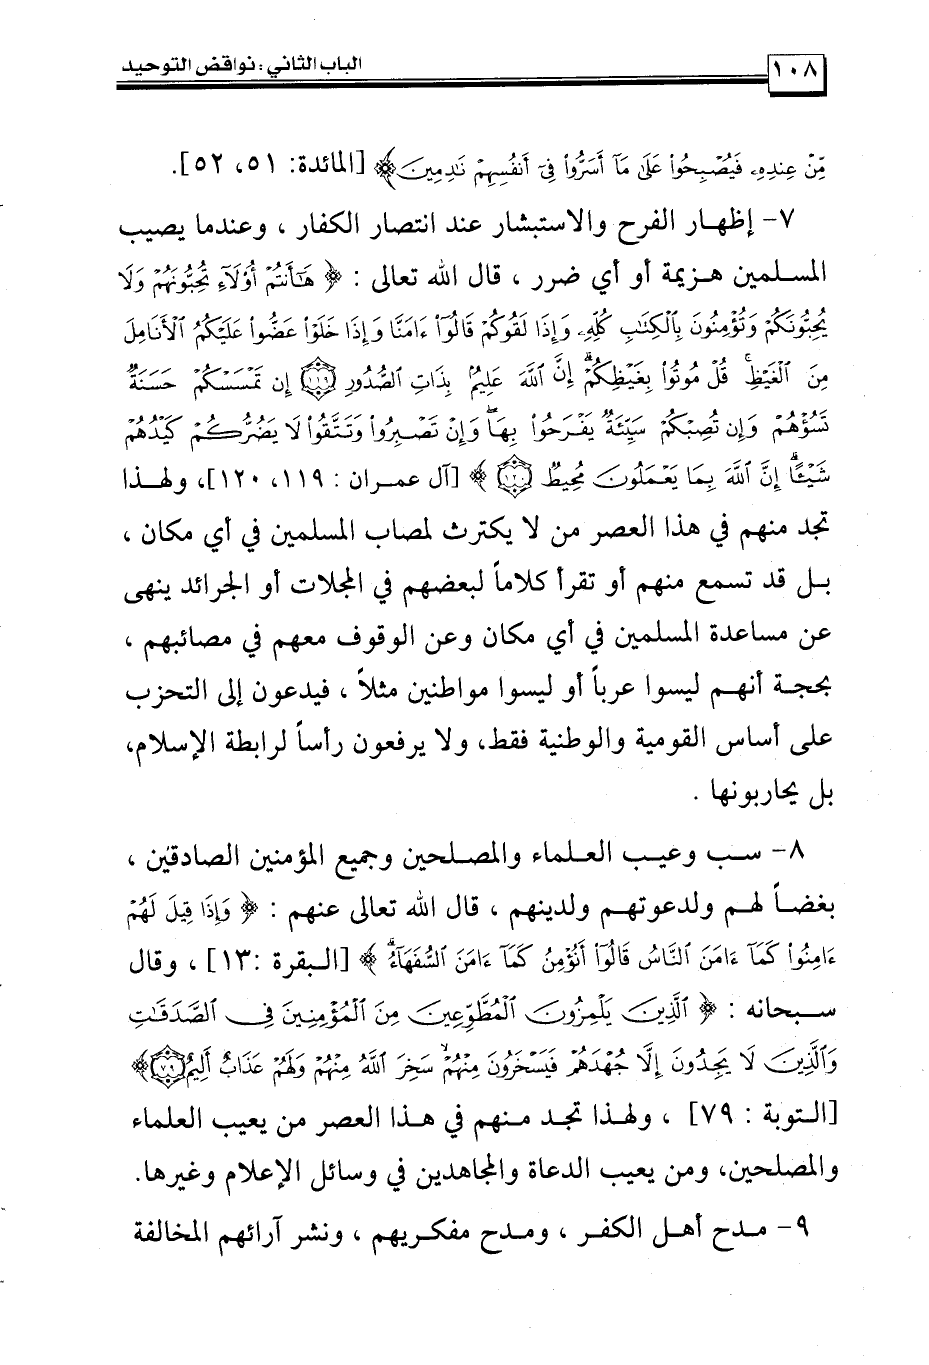 ١٠٨
الباب الثاني : نواقض التوحيد
مِّنْ عِندِهِۦ فَيُصْبِحُوا۟ عَلَىٰ مَآ أَسَرُّوا۟ فِىٓ أَنفُسِهِمْ نَـٰدِمِينَ ﴾ [المائدة: ٥١، ٥٢].
٧- إظهار الفرح والاستبشار عند انتصار الكفار ، وعندما يصيب
المسلمين هزيمة أو أي ضرر ، قال الله تعالى : ﴿ هَـٰٓأَنتُمْ أُو۟لَآءِ تُحِبُّونَهُمْ وَلَا
يُحِبُّونَكُمْ وَتُؤْمِنُونَ بِٱلْكِتَـٰبِ كُلِّهِۦ وَإِذَا لَقُوكُمْ قَالُوٓا۟ ءَامَنَّا وَإِذَا خَلَوْا۟ عَضُّوا۟ عَلَيْكُمُ ٱلْأَنَامِلَ
مِنَ ٱلْغَيْظِ ۚ قُلْ مُوتُوا۟ بِغَيْظِكُمْ ۗ إِنَّ ٱللَّهَ عَلِيمٌۢ بِذَاتِ ٱلصُّدُورِ ١١٩ إِن تَمْسَسْكُمْ حَسَنَةٌ
تَسُؤْهُمْ وَإِن تُصِبْكُمْ سَيِّئَةٌ يَفْرَحُوا۟ بِهَا ۖ وَإِن تَصْبِرُوا۟ وَتَتَّقُوا۟ لَا يَضُرُّكُمْ كَيْدُهُمْ
شَيْـًٔا ۗ إِنَّ ٱللَّهَ بِمَا يَعْمَلُونَ مُحِيطٌ ١٢٠ ﴾ [آل عمران : ١١٩، ١٢٠]، ولهذا
تجد منهم في هذا العصر من لا يكترث لمصاب المسلمين في أي مكان ،
بل قد تسمع منهم أو تقرأ كلاماً لبعضهم في المجلات أو الجرائد ينهى
عن مساعدة المسلمين في أي مكان وعن الوقوف معهم في مصائبهم ،
بحجة أنهم ليسوا عرباً أو ليسوا مواطنين مثلاً ، فيدعون إلى التحزب
على أساس القومية والوطنية فقط، ولا يرفعون رأساً لرابطة الإسلام،
بل يحاربونها .
٨- سب وعيب العلماء والمصلحين وجميع المؤمنين الصادقين ،
بغضاً لهم ولدعوتهم ولدينهم ، قال الله تعالى عنهم : ﴿ وَإِذَا قِيلَ لَهُمْ
ءَامِنُوا۟ كَمَآ ءَامَنَ ٱلنَّاسُ قَالُوٓا۟ أَنُؤْمِنُ كَمَآ ءَامَنَ ٱلسُّفَهَآءُ ۗ ﴾ [البقرة :١٣] ، وقال
سبحانه : ﴿ ٱلَّذِينَ يَلْمِزُونَ ٱلْمُطَّوِّعِينَ مِنَ ٱلْمُؤْمِنِينَ فِى ٱلصَّدَقَـٰتِ
وَٱلَّذِينَ لَا يَجِدُونَ إِلَّا جُهْدَهُمْ فَيَسْخَرُونَ مِنْهُمْ ۙ سَخِرَ ٱللَّهُ مِنْهُمْ وَلَهُمْ عَذَابٌ أَلِيمٌ ٧٩ ﴾
[التوبة : ٧٩] ، ولهذا تجد منهم في هذا العصر من يعيب العلماء
والمصلحين، ومن يعيب الدعاة والمجاهدين في وسائل الإعلام وغيرها.
٩- مدح أهل الكفر ، ومدح مفكريهم ، ونشر آرائهم المخالفة